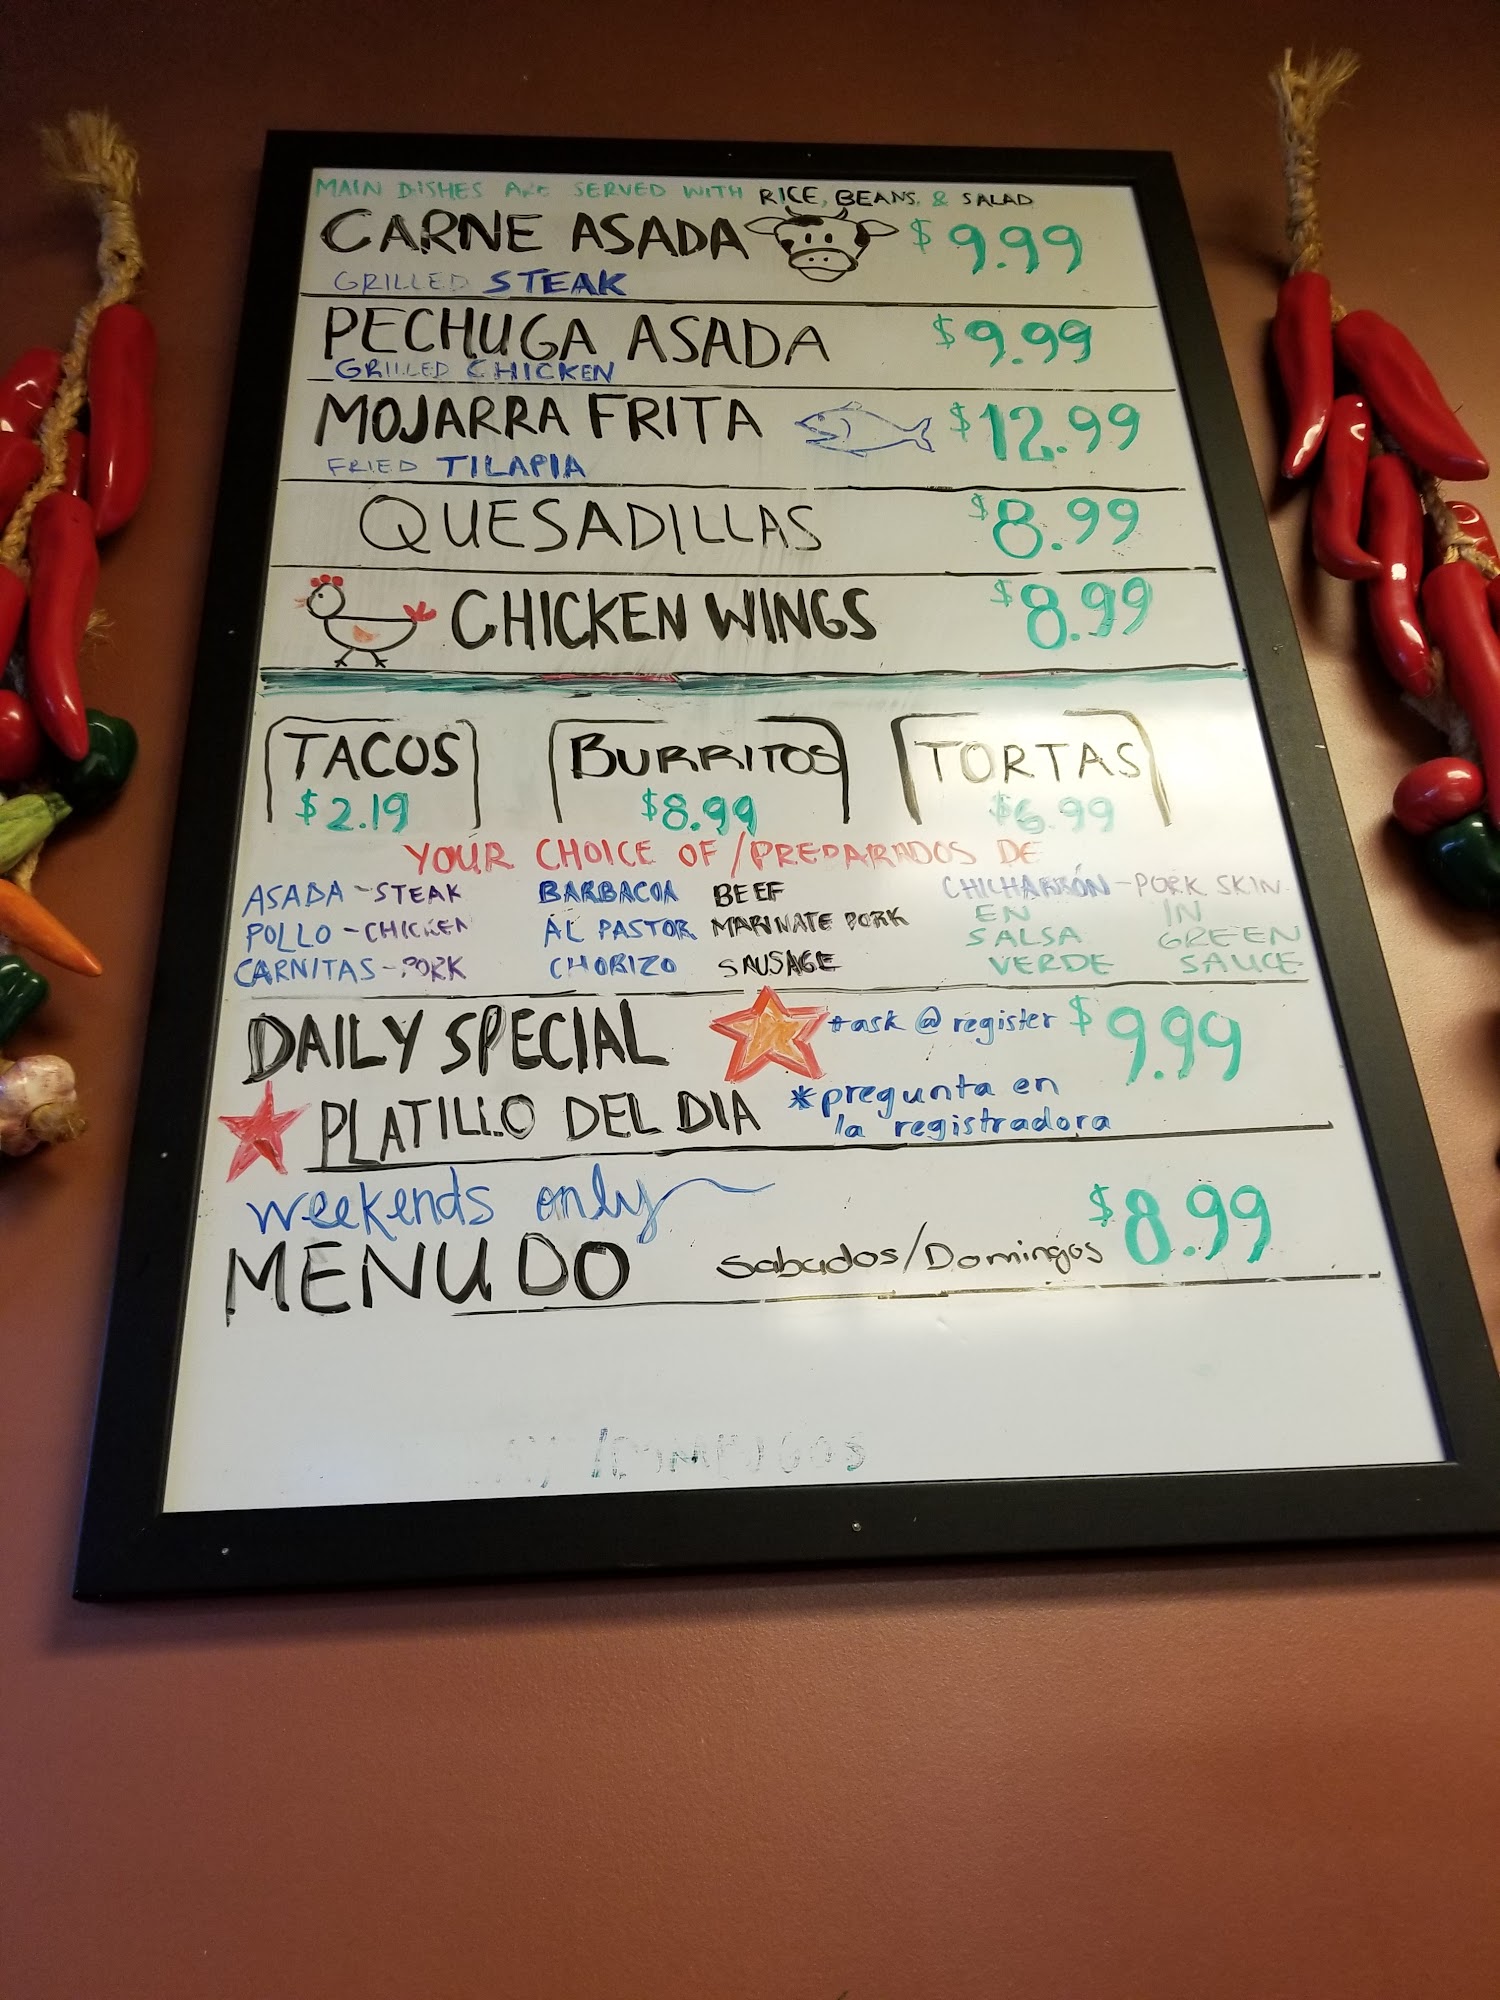 MAIN DISHES ARE SERVED WITH RICE, BEANS, & SALAD
CARNE ASADA $9.99
GRILLED STEAK
PECHUGA ASADA $9.99
GRILLED CHICKEN
MOJARRA FRITA $12.99
FRIED TILAPIA
QUESADILLAS $8.99
CHICKEN WINGS $8.99
TACOS BURRITOS TORTAS
$2.19 $8.99 $6.99
YOUR CHOICE OF/PREPARADOS DE
ASADA-STEAK BARBACOA BEEF CHICHARRÓN-PORK SKIN
POLLO-CHICKEN AL PASTOR MARINATE PORK EN SALSA IN GREEN
CARNITAS-PORK CHORIZO SAUSAGE VERDE SAUCE
DAILY SPECIAL *ask @ register $9.99
PLATILLO DEL DIA *pregunta en
la registradora
weekends only
MENUDO Sabados/Domingos $8.99